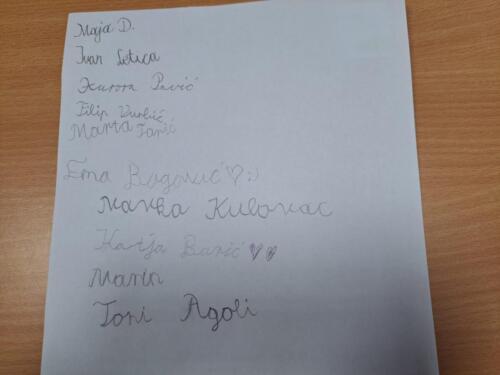 Maja D.
Ivan Letica
Aurora Pavić
Filip
Marta Tomić
Ema
Marka Kulovac
Katja Barić
Marin
Toni Agoli